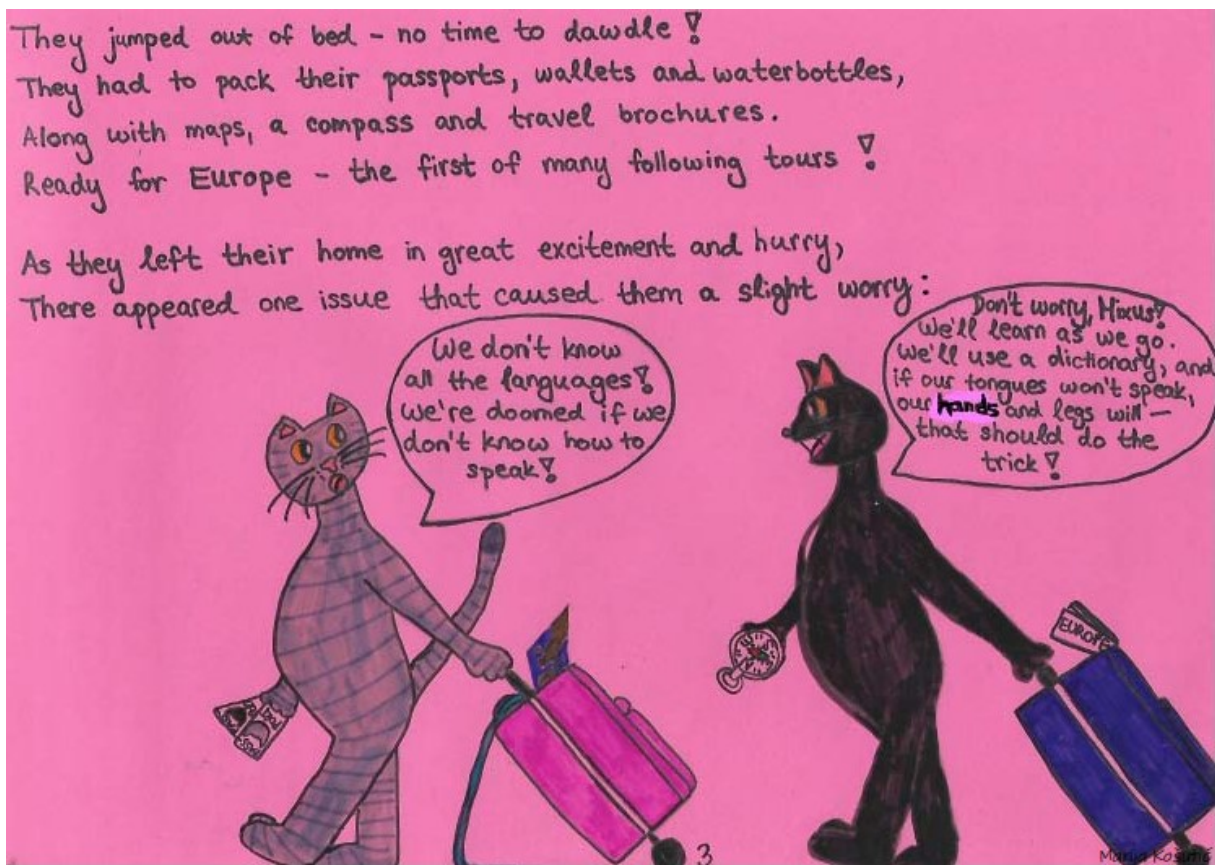 They jumped out of bed - no time to dawdle !
They had to pack their passports, wallets and waterbottles,
Along with maps, a compass and travel brochures.
Ready for Europe - the first of many following tours !
As they left their home in great excitement and hurry,
There appeared one issue that caused them a slight worry:
We don't know
all the languages!
We're doomed if we
don't know how to
speak!
Don't worry, Mixus!
We'll learn as we go.
We'll use a dictionary, and
if our tongues won't speak,
our hands and legs will —
that should do the
trick !
EUROPE
3